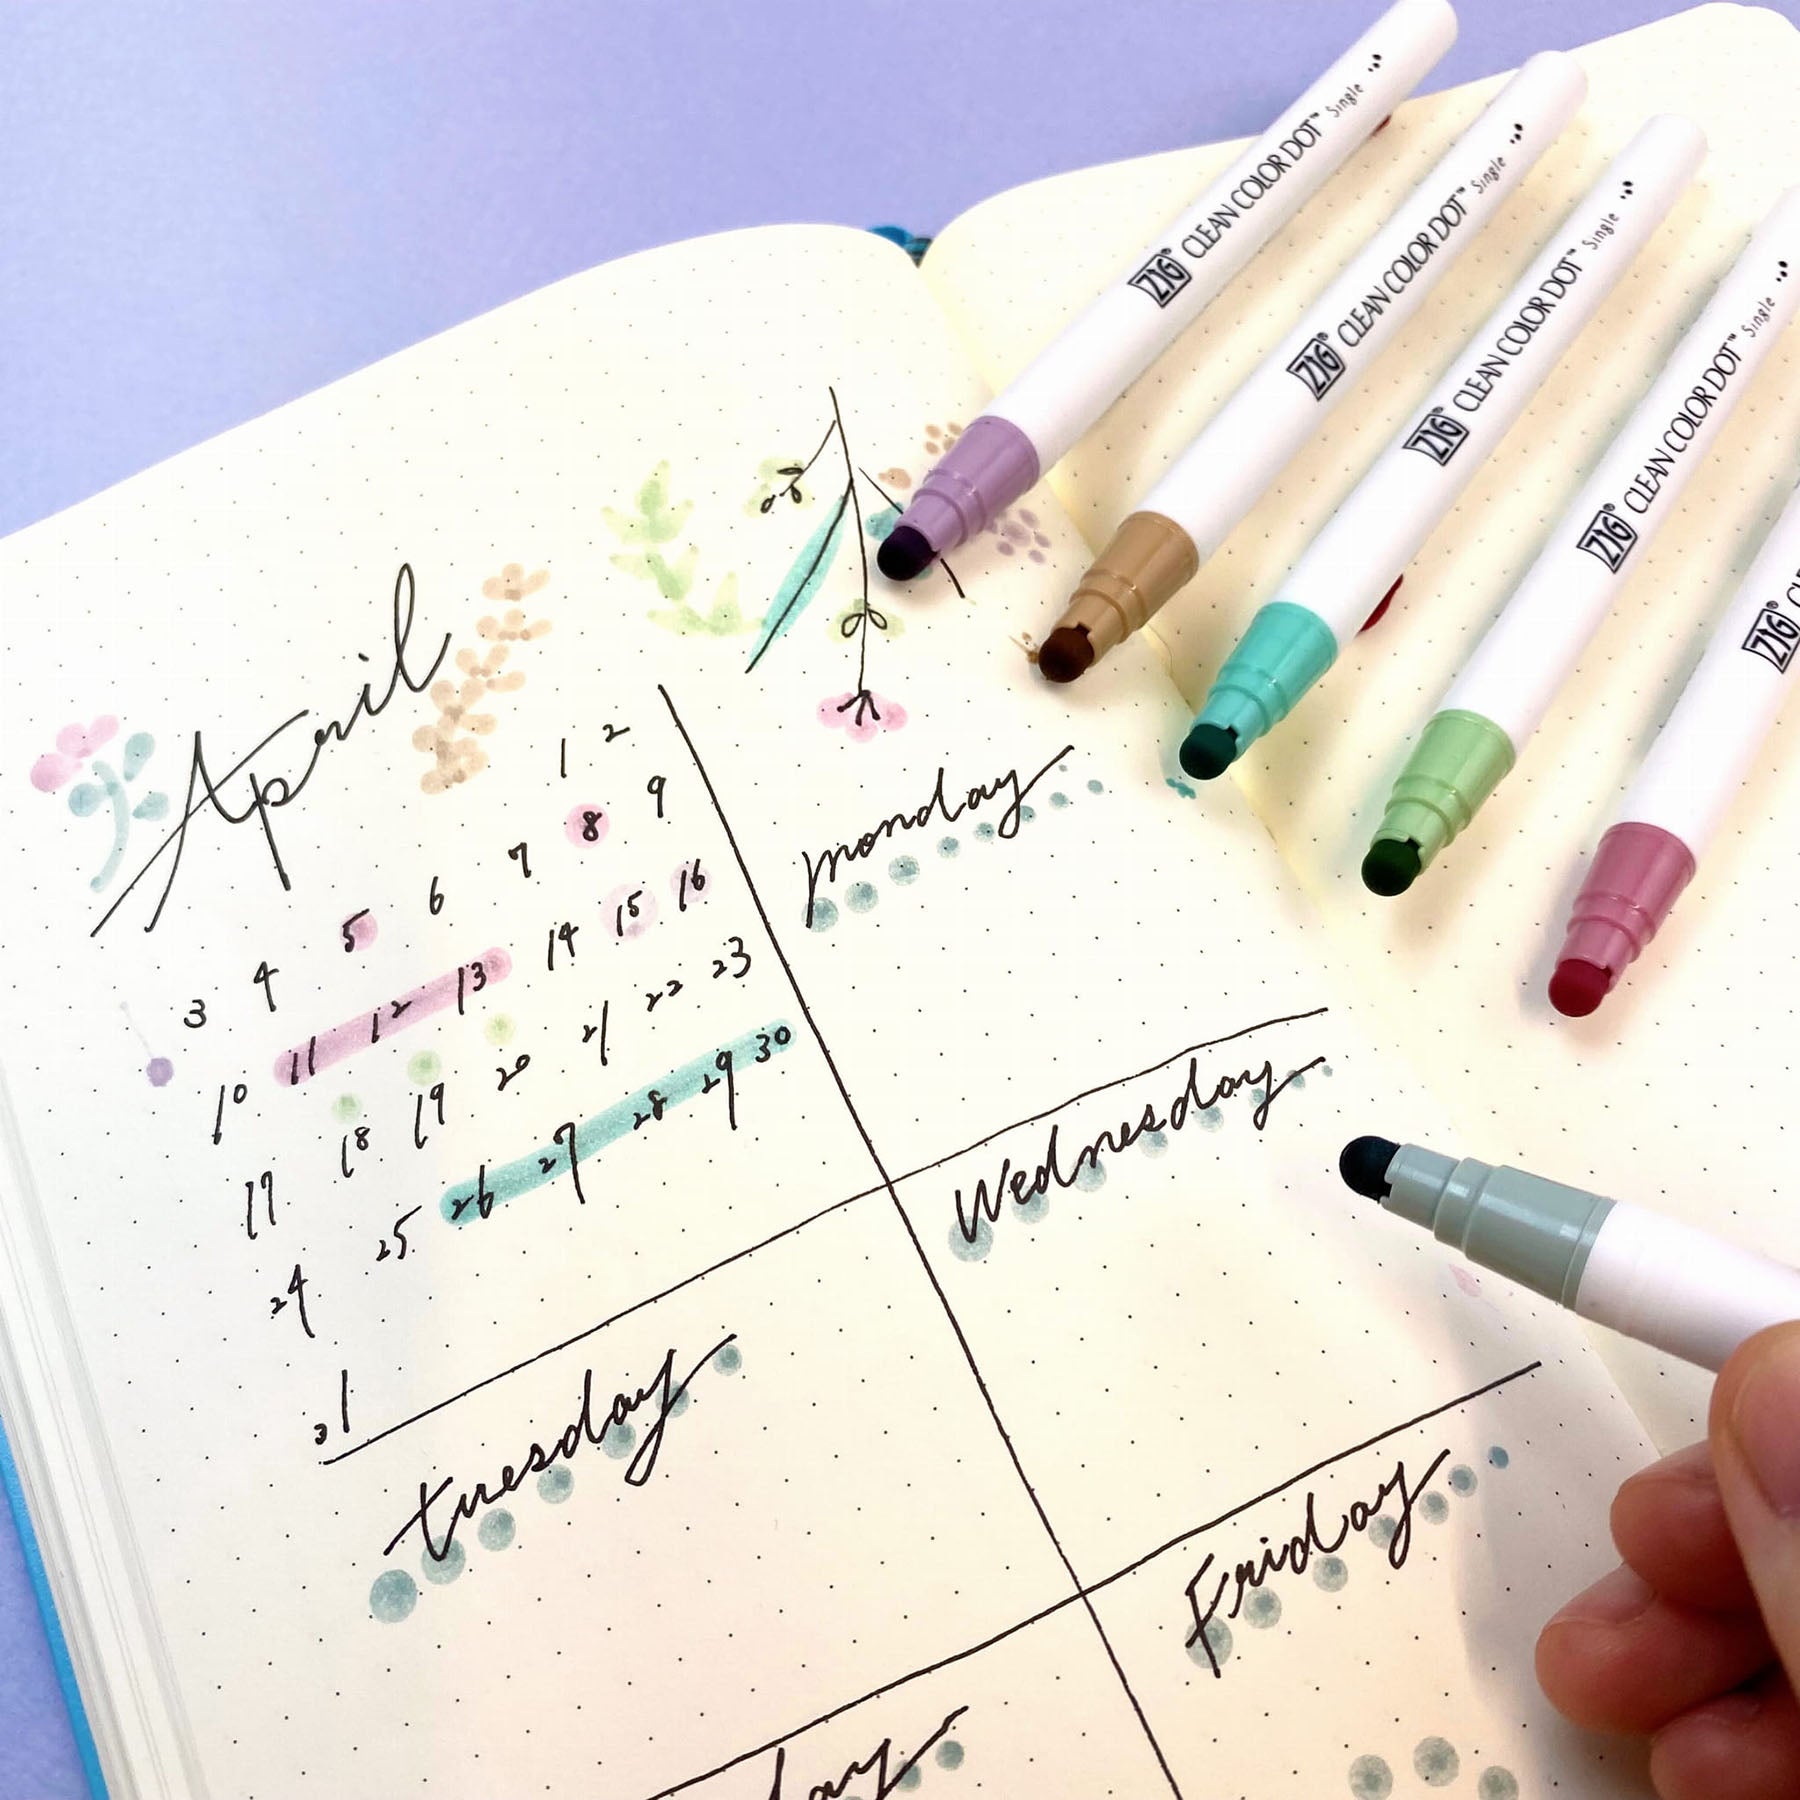 April
1 2
3 4 5 6 7 8 9
10 11 12 13 14 15 16
17 18 19 20 21 22 23
24 25 26 27 28 29 30
31
monday
tuesday
Wednesday
Friday
ZIG® CLEAN COLOR DOT™ Single
ZIG® CLEAN COLOR DOT™ Single
ZIG® CLEAN COLOR DOT™ Single
ZIG® CLEAN COLOR DOT™ Single
ZIG®